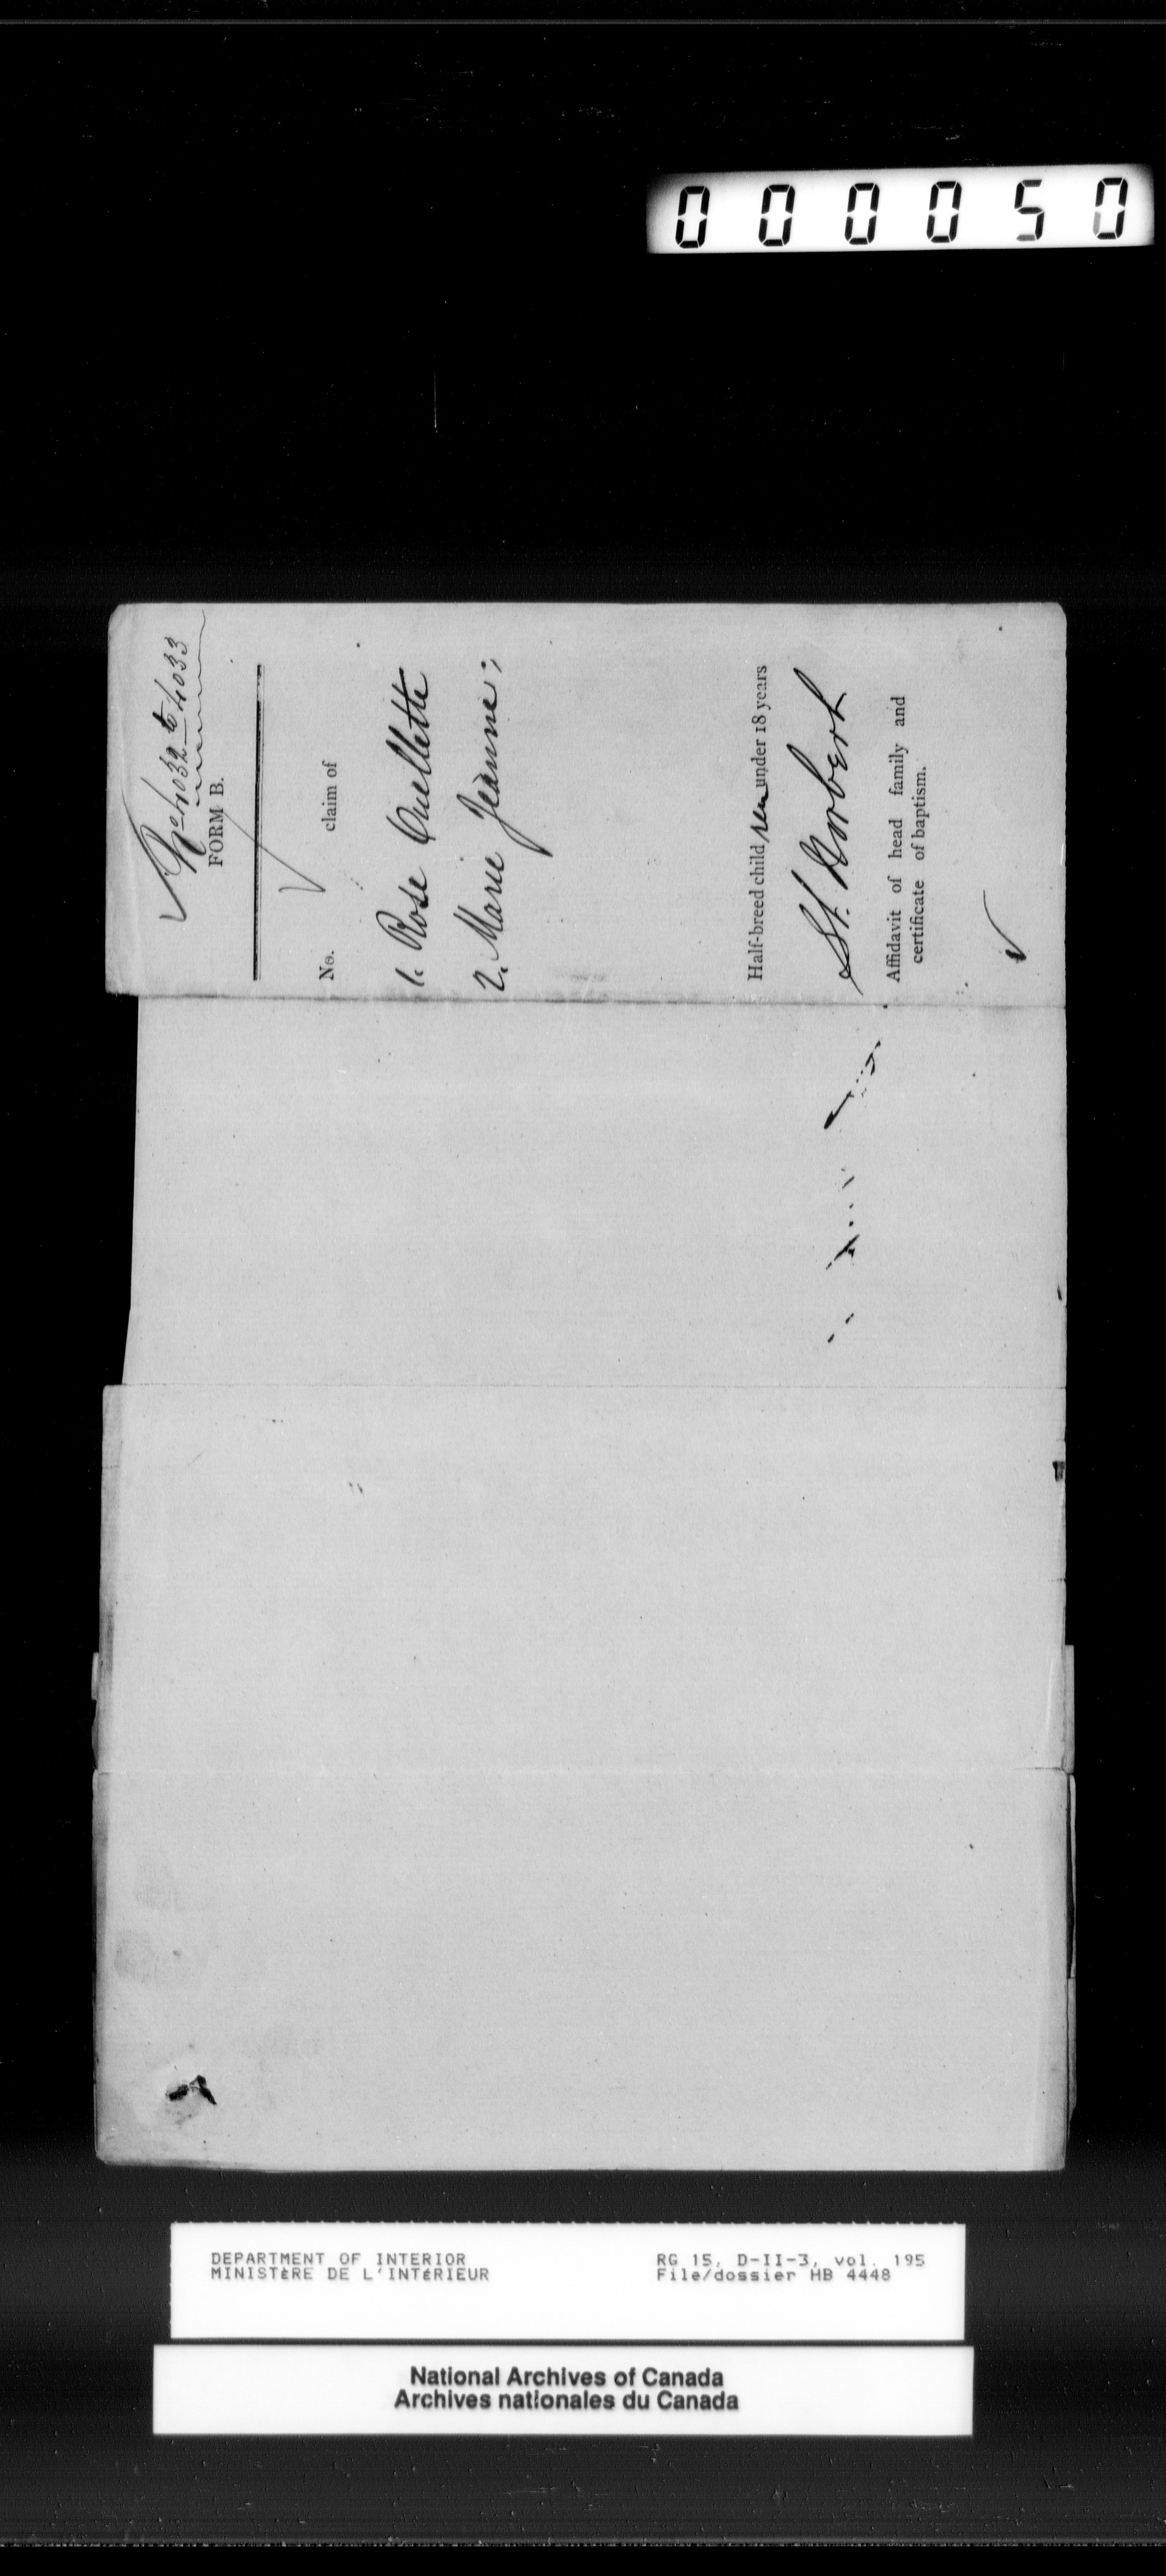 000050
No 4032 to 4033
FORM B.
No. claim of
1. Rose Ouellette
2. Marie Jeanne;
Half-breed children under 18 years
St. Norbert
Affidavit of head family and
certificate of baptism.
DEPARTMENT OF INTERIOR
MINISTÈRE DE L'INTÉRIEUR
RG 15, D-II-3, vol. 195
File/dossier HB 4448
National Archives of Canada
Archives nationales du Canada